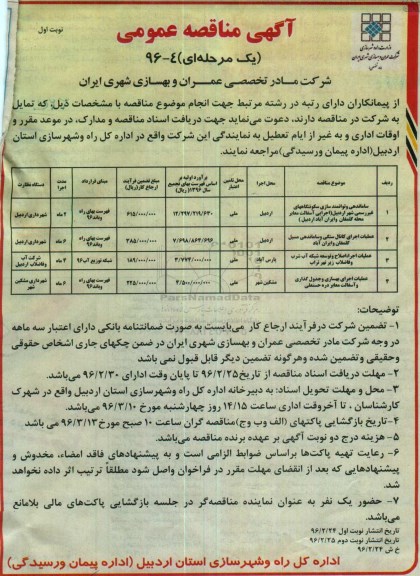 آگهی مناقصه عمومی
نوبت اول
(یک مرحله‌ای) ۴-۹۶
شرکت مادر تخصصی عمران و بهسازی شهری ایران
از پیمانکاران دارای رتبه در رشته مرتبط جهت انجام موضوع مناقصه با مشخصات ذیل، که تمایل
به شرکت در مناقصه دارند، دعوت می‌نماید جهت دریافت اسناد مناقصه و مدارک، در موعد مقرر و
اوقات اداری و به غیر از ایام تعطیل به نمایندگی این شرکت واقع در اداره کل راه وشهرسازی استان
اردبیل(اداره پیمان ورسیدگی)مراجعه نمایند.
ردیف موضوع مناقصه محل اجرا محل تامین اعتبار برآورد اولیه بر اساس فهرست بهای تجمیع سال ۱۳۹۶(ریال) مبلغ تضمین فرآیند ارجاع کار(ریال) مبنای قرارداد مدت اجرا دستگاه نظارت
۱ اردبیل ملی ۶۱۵/۰۰۰/۰۰۰ فهرست بهای راه وباند۹۶ شهرداری اردبیل
۲ اردبیل ملی ۳۸۵/۰۰۰/۰۰۰ فهرست بهای راه وباند۹۶ شهرداری اردبیل
۳ پارس آباد ملی ۳/۷۷۴/۰۰۰/۰۰۰ ۱۸۹/۰۰۰/۰۰۰ شبکه توزیع آب۹۶ شرکت آب وفاضلاب اردبیل
۴ عملیات اجرای بهسازی و جدول گذاری مشگین شهر ملی ۴/۵۰۰/۰۰۰/۰۰۰ ۲۲۵/۰۰۰/۰۰۰ فهرست بهای راه وباند۹۶ شهرداری مشگین شهر
ParsNamadData
توضیحات:
۱- تضمین شرکت درفرآیند ارجاع کار می‌بایست به صورت ضمانتنامه بانکی دارای اعتبار سه ماهه
در وجه شرکت مادر تخصصی عمران و بهسازی شهری ایران در ضمن چکهای جاری اشخاص حقوقی
وحقیقی وتضمین شده وهرگونه تضمین دیگر قابل قبول نمی باشد
۲- مهلت دریافت اسناد مناقصه از تاریخ۹۶/۲/۲۵ تا پایان وقت اداری ۹۶/۲/۳۰ می باشد.
۳- محل و مهلت تحویل اسناد: به دبیرخانه اداره کل راه وشهرسازی استان اردبیل واقع در شهرک
کارشناسان ، تا آخروقت اداری ساعت ۱۴/۱۵ روز چهارشنبه مورخ ۹۶/۳/۱۰ می‌باشد.
۴- تاریخ بازگشایی پاکتهای (الف وب وج)مناقصه گران ساعت ۱۰ صبح مورخ۹۶/۳/۱۳ می باشد
۵- هزینه درج دو نوبت آگهی بر عهده برنده مناقصه می‌باشد.
۶- رعایت تهیه پاکت‌ها براساس ضوابط الزامی است و به پیشنهادهای فاقد امضاء، مخدوش و
پیشنهادهایی که بعد از انقضای مهلت مقرر در فراخوان واصل شود مطلقاً ترتیب اثر داده نخواهد
شد.
۷- حضور یک نفر به عنوان نماینده مناقصه‌گر در جلسه بازگشایی پاکت‌های مالی بلامانع
می‌باشد.
تاریخ انتشار نوبت اول ۹۶/۲/۲۴
تاریخ انتشار نوبت دوم ۹۶/۲/۲۵
خ ش ۹۶/۲/۲۴
اداره کل راه وشهرسازی استان اردبیل (اداره پیمان ورسیدگی)